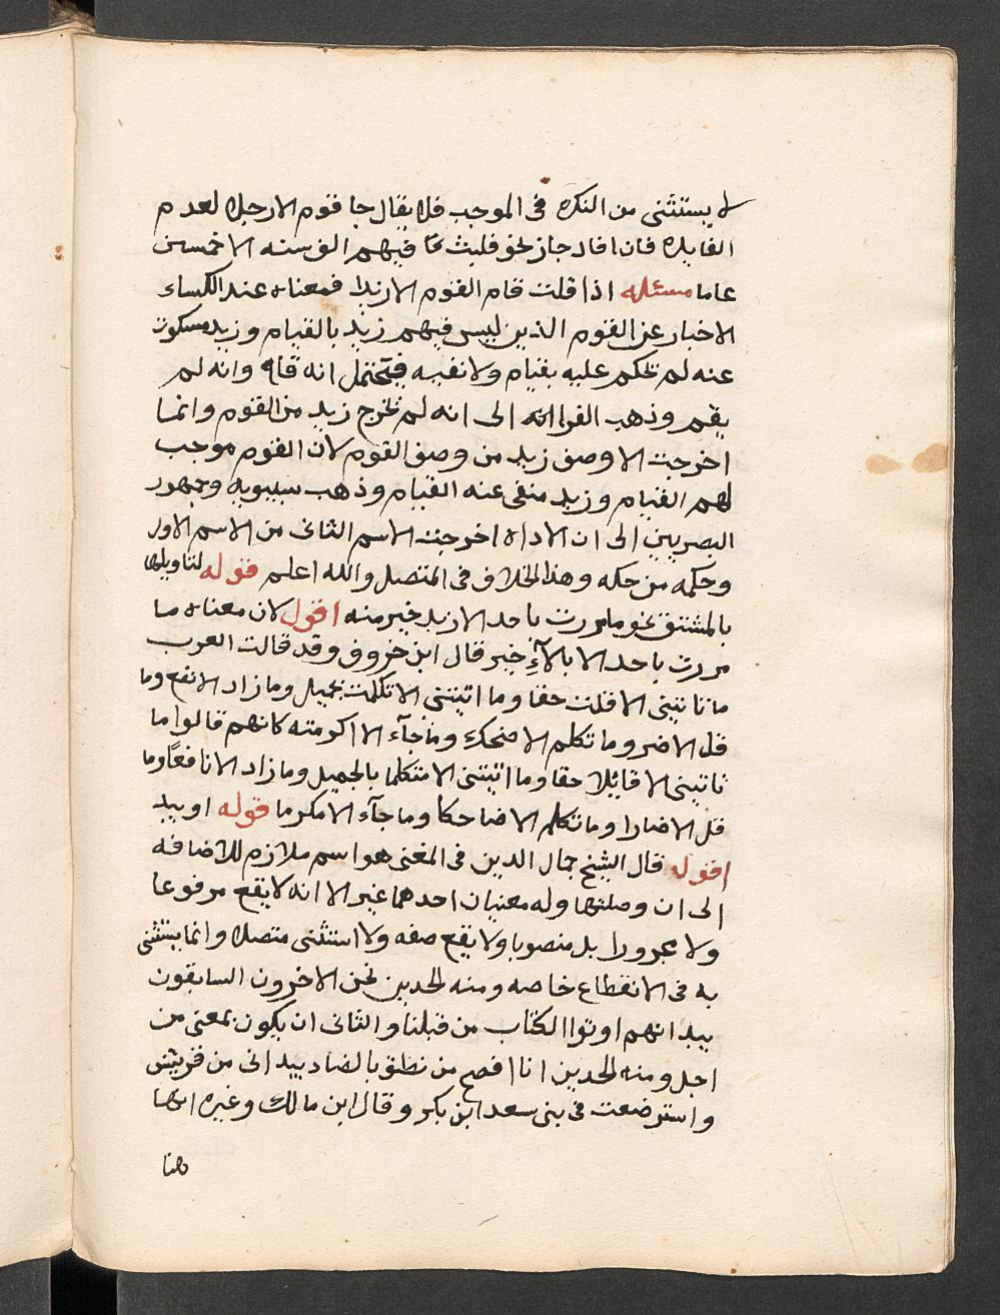 لا يستثنى من النكره فى الموجب فلا يقال جا قوم الا رجلا لعدم
الفايده فان افاد جاز نحو فلبث فيهم الف سنه الا خمسين
عاما مسئله اذا قلت قام القوم الا زيدا فمعناه عند الكساء
الاخبار عن القوم الذين ليس فيهم زيد بالقيام وزيد مسكوت
عنه لم يحكم عليه بقيام ولا نفيه فيحتمل انه قام وانه لم
يقم وذهب الفرا الى انه لم يخرج زيد من القوم وانما
اخرجت الا وصف زيد من وصف القوم لان القوم موجب
لهم القيام وزيد منفى عنه القيام وذهب سيبويه وجمهور
البصريين الى ان الاداه اخرجت الاسم الثانى من الاسم الاول
وحكمه من حكه وهذا الخلاف فى المتصل والله اعلم قوله لتاويلها
بالمشتق نحو ما مررت باحد الا زيد خير منه اقول لان معناه ما
مررت باحد الا بالآءِ خير قال ابن خروف وقد قالت العرب
ما تاتينى الا قلت حقا وما اتيتنى الا تكلمت بجميل وما زاد الا نفع وما
قل الا ضر وما تكلم الا ضحك وما جآء الا اكرمته كانهم قالوا ما
تاتينى الا قايلا حقا وما اتيتنى الا متكلما بالجميل وما زاد الا نافعًا وما
قل الا ضارا وما تكلم الا ضاحكا وما جآء الا مكرما قوله او بيد
اقول قال الشيخ جمال الدين فى المغنى هو اسم ملازم للاضافه
الى ان وصلتها وله معنيان احدهما غير الا انه لا يقع مرفوعا
ولا مجرورا بل منصوبا ولا يقع صفه ولا استثنى متصلا وانما يستثنى
به فى الانقطاع خاصه ومنه الحديث نحن الاخرون السابقون
بيد انهم اوتوا الكتاب من قبلنا والثانى ان يكون بمعنى من
اجل ومنه الحديث انا افصح من نطق بالضاد بيد انى من قريش
واسترضعت فى بنى سعد ابن بكر وقال ابن مالك وغيره انها
هنا